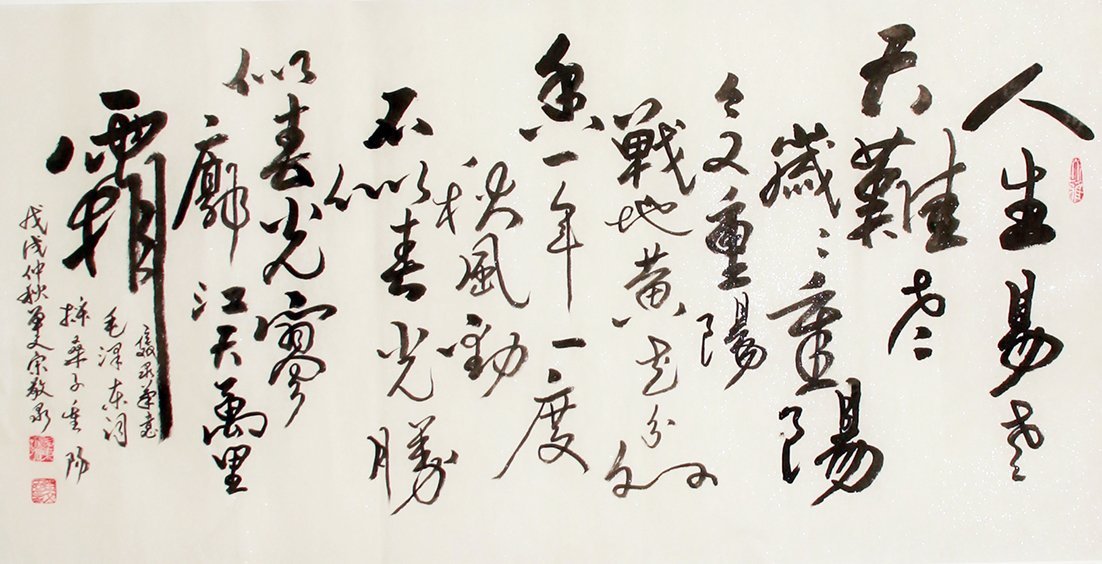 人生易老
天難老
歲〻重陽
今又重陽
戰地黃花分外
香一年一度
秋風勁
不似春光勝
似春光寥
廓江天萬里
霜
毛澤東詞
採桑子重陽
戊戌仲秋單父宋敬泉